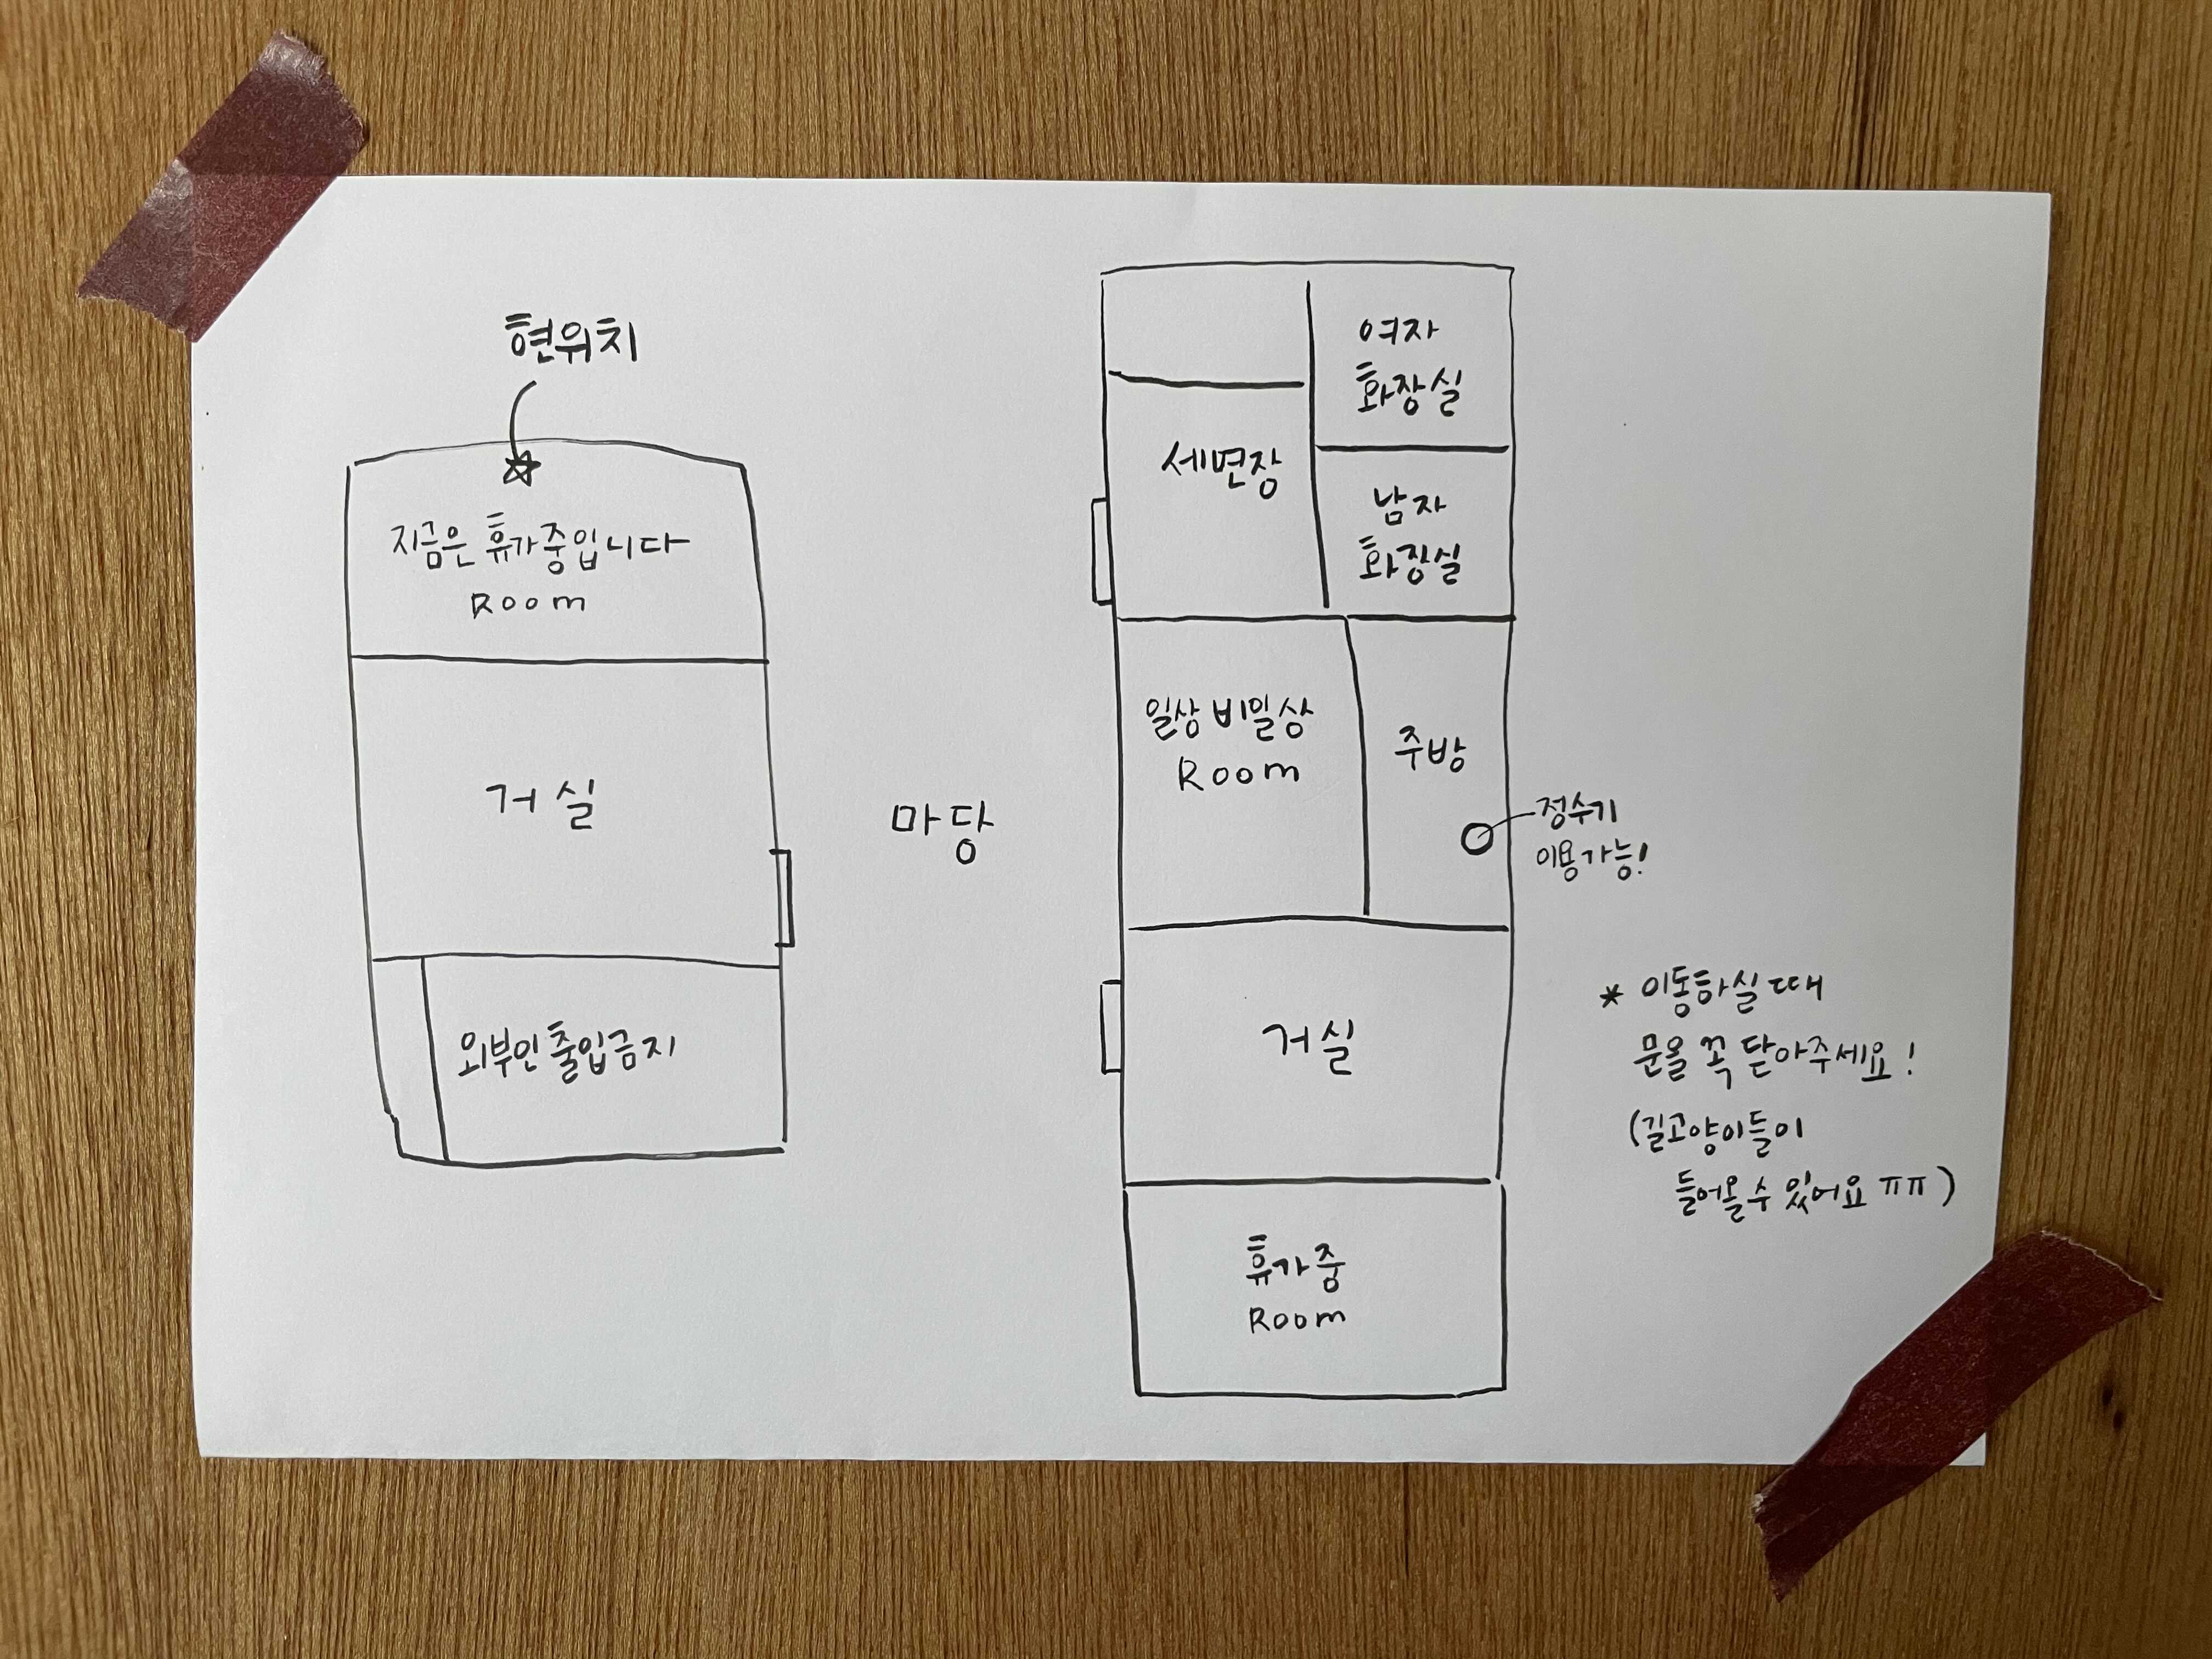 현위치
지금은 휴가중입니다
Room
거실
외부인 출입금지
마당
여자
화장실
세면장
남자
화장실
일상비일상
Room
주방
정수기
이용가능!
거실
휴가중
Room
* 이동하실 때
문을 꼭 닫아주세요!
(길고양이들이
들어올 수 있어요 ㅠㅠ)